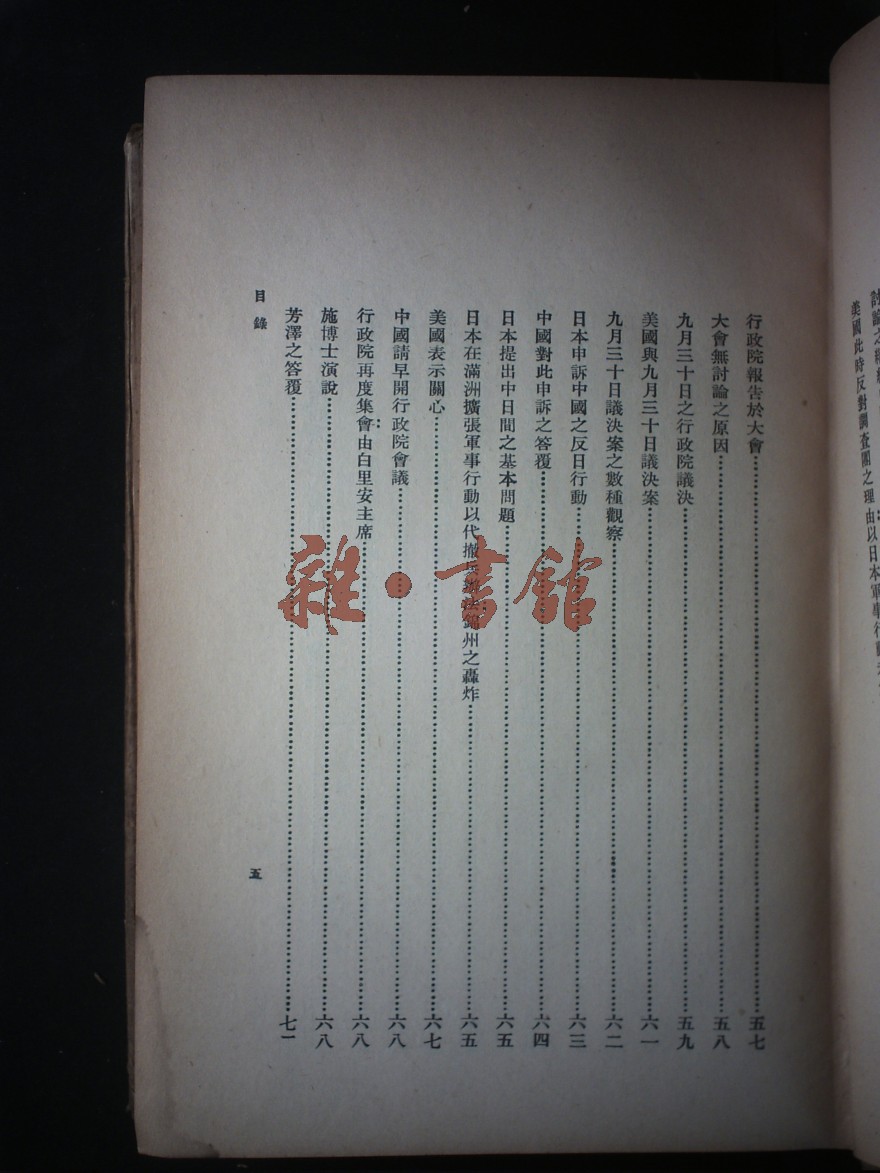 美國此時反對調查團之理由以日本軍事行
行政院報告於大會……五七
大會無討論之原因……五八
九月三十日之行政院議決……五九
美國與九月三十日議決案……六一
九月三十日議決案之數種觀察……六二
日本申訴中國之反日行動……六三
中國對此申訴之答覆……六四
日本提出中日間之基本問題……六五
日本在滿洲擴張軍事行動以代撤兵辦法錦州之轟炸……六五
美國表示關心……六七
中國請早開行政院會議……六八
行政院再度集會:由白里安主席……六八
施博士演說……六八
芳澤之答覆……七一
目錄
五
雜·書館